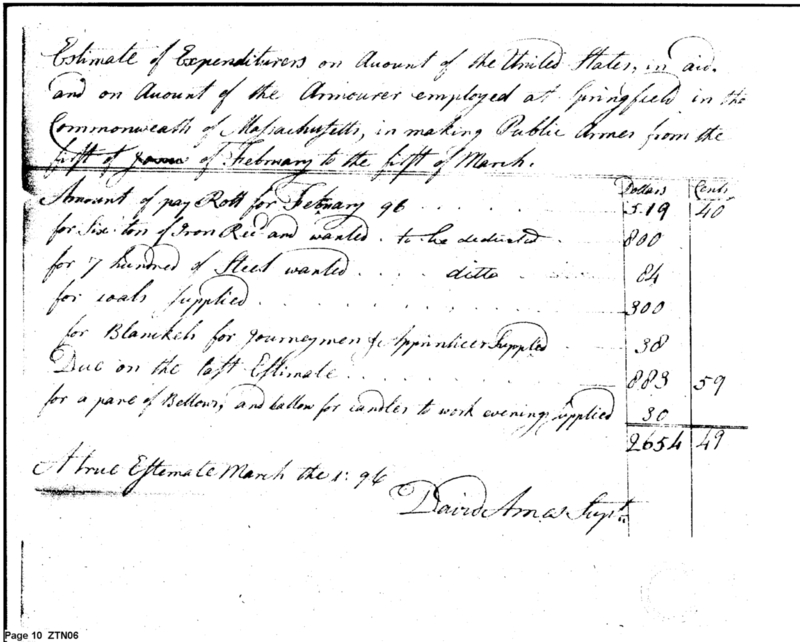 Estimate of Expenditurers on Acount of the United States, in aid.
and on Acount of the Armourer employed at Springfield in the
Commonwealth of Massachusetts, in making Public Armes from the
first of of February to the first of March.
Dollars Cents
Amount of pay Roll for February 96 . . . . . . 519 40
for Six ton of Iron Recd and wanted . to be deducted . . . 800
for 7 hundred of Steel wanted . . . . ditto . . . . . 84
for coals supplied . . . . . . . . . . 300
for Blankets for Journeymen & Apprinticer Supplied . . . 38
Due on the last Estimate . . . . . . . . 883 59
for a pare of Bellows, and tallow for candles to work evenings supplied 30
2654 49
A true Estemate March the 1: 96
David Ames Supt.
Page 10 ZTN06